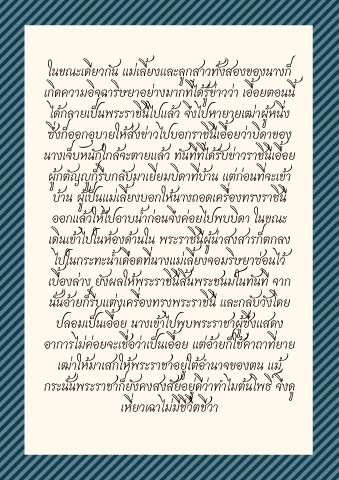 ในขณะเดียวกัน แม่เลี้ยงและลูกสาวทั้งสองของนางก็
เกิดความอิจฉาริษยาอย่างมากที่ได้รู้ข่าวว่า เอื้อยตอนนี้
ได้กลายเป็นพระราชินีไปแล้ว จึงไปหายายเฒ่าผู้หนึ่ง
ซึ่งก็ออกอุบายให้ส่งข่าวไปบอกราชินีเอื้อยว่าบิดาของ
นางเจ็บหนักใกล้จะตายแล้ว ทันทีที่ได้รับข่าวราชินีเอื้อย
ผู้กตัญญูก็รีบกลับมาเยี่ยมบิดาที่บ้าน แต่ก่อนที่จะเข้า
บ้าน ผู้เป็นแม่เลี้ยงบอกให้นางถอดเครื่องทรงราชินี
ออกแล้วให้ไปอาบน้ำก่อนจึงค่อยไปพบบิดา ในขณะ
เดินเข้าไปในห้องด้านใน พระราชินีผู้น่าสงสารก็ตกลง
ไปในกระทะน้ำเดือดที่นางแม่เลี้ยงจอมริษยาซ่อนไว้
เบื้องล่าง ยังผลให้พระราชินีสิ้นพระชนม์ในทันที จาก
นั้นอ้ายก็รีบแต่งเครื่องทรงพระราชินี และกลับวังโดย
ปลอมเป็นเอื้อย นางเข้าไปพบพระราชาผู้ซึ่งแสดง
อาการไม่ค่อยจะเชื่อว่าเป็นเอื้อย แต่อ้ายก็ใช้คาถาที่ยาย
เฒ่าให้มาเสกให้พระราชาอยู่ใต้อำนาจของตน แม้
กระนั้นพระราชาก็ยังคงสงสัยอยู่ดีว่าทำไมต้นโพธิ์ จึงดู
เหี่ยวเฉาไม่มีชีวิตชีวา